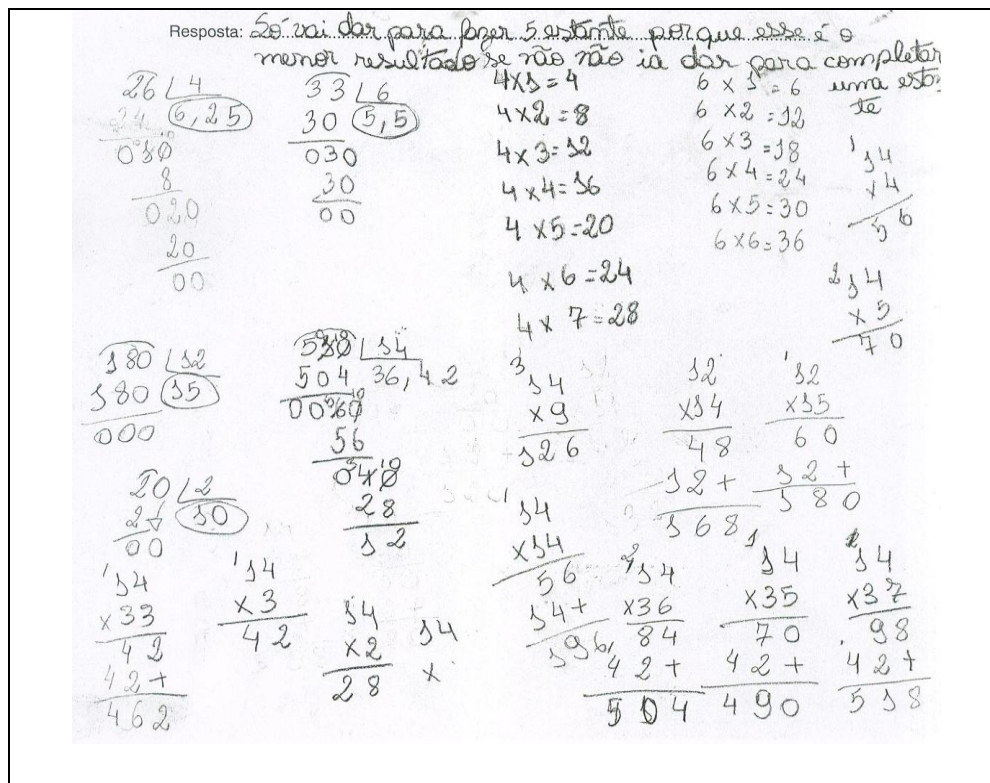 Resposta: Só vai dar para fazer 5 estante porque esse é o
menor resultado se não não ia dar para completar
uma estan
te
26 4
24 6,25
0 10
8
020
20
00
33 6
30 5,5
030
30
00
4x1=4
4x2=8
4x3=12
4x4=16
4x5=20
4x6=24
4x7=28
6x1=6
6x2=12
6x3=18
6x4=24
6x5=30
6x6=36
1
14
x4
56
2
14
x5
70
180 12
180 15
000
510 14
504 36,42
0060
56
040
28
12
3
14
x9
126
12
x14
48
12+
168
1
12
x15
60
12+
180
20 2
2 10
00
1
14
x33
42
42+
462
1
14
x3
42
14
x2
28
14
x
1
14
x14
56
14+
196
2
14
x36
84
42+
504
1
14
x35
70
42+
490
2
14
x37
98
42+
518